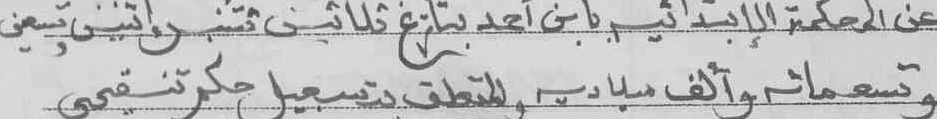 عن المحكمة الإبتدائيه بابن أحمد بتاريخ ثلاثين شتنبر واثنين وتسعين
وتسعمائه وألف ميلاديه والمتعلق بتسجيل حكم تنقيحي